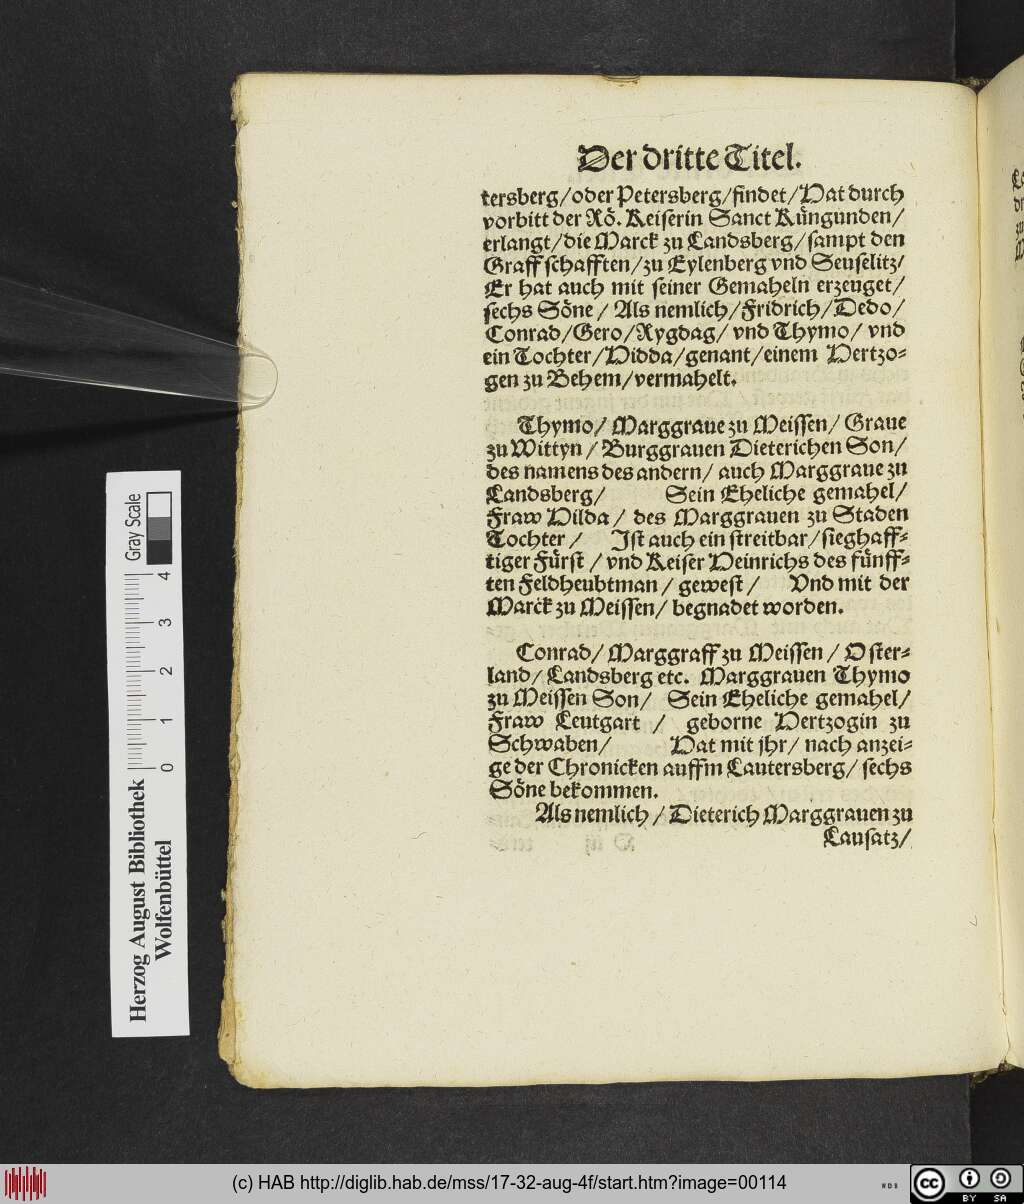 Der dritte Titel.
tersberg/oder Petersberg/findet/Hat durch
vorbitt der Rö. Keiserin Sanct Küngunden/
erlangt/die Marck zu Landsberg/sampt den
Graffschafften/zu Eylenberg vnd Seuselitz/
Er hat auch mit seiner Gemaheln erzeuget/
sechs Söne/ Als nemlich/Fridrich/Dedo/
Conrad/Gero/Rygdag/ vnd Thymo/ vnd
ein Tochter/Hidda/genant/einem Hertzo-
gen zu Behem/vermahelt.
Thymo/ Marggraue zu Meissen/ Graue
zu Wittyn/ Burggrauen Dieterichen Son/
des namens des andern/ auch Marggraue zu
Landsberg/ Sein Eheliche gemahel/
Fraw Hilda/ des Marggrauen zu Staden
Tochter/ Ist auch ein streitbar/sieghaff-
tiger Fürst/ vnd Keiser Heinrichs des fünff-
ten Feldheubtman/ gewest/ Vnd mit der
Marck zu Meissen/ begnadet worden.
Conrad/ Marggraff zu Meissen/ Oster-
land/ Landsberg etc. Marggrauen Thymo
zu Meissen Son/ Sein Eheliche gemahel/
Fraw Leutgart/ geborne Hertzogin zu
Schwaben/ Hat mit jhr/ nach anzei-
ge der Chronicken auffm Lautersberg/ sechs
Söne bekommen.
Als nemlich/ Dieterich Marggrauen zu
Lausatz/
Herzog August Bibliothek
Wolfenbüttel
Gray Scale
0 1 2 3 4
(c) HAB http://diglib.hab.de/mss/17-32-aug-4f/start.htm?image=00114
cc BY SA